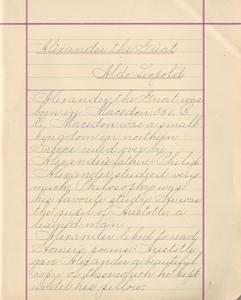 Alexander the Great
Aldo Leopold
Alexander the Great was
born in Macedon, 356 B.
C. Macedon was a small
kingdom in northern
Greece ruled over by
Alexander's father Philip.
Alexander studied very
much. Philosophy was
his favorite study. He was
the pupil of Aristotle a
learned man.
Alexander liked to read
Homer's poems. Aristotle
gave Alexander a beautiful
copy of them which he kept
under his pillow.